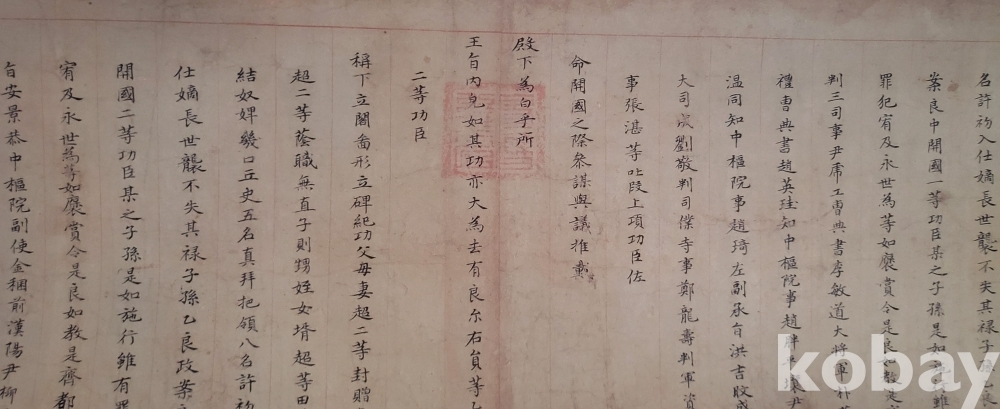 名許初入仕嫡長世襲不失其祿子孫乙良
案良中開國一等功臣某之子孫是如雖
罪犯宥及永世為等如襃賞令是良如教是
判三司事尹虎工曹典書李敏道大將軍朴
禮曹典書趙英珪知中樞院事趙胖尹
溫同知中樞院事趙琦左副承旨洪吉旼成
大司成劉敬判司僕寺事鄭龍壽判軍資
事張湛等叱段上項功臣佐
命開國之際參謀與議推戴
殿下為白乎所
王旨內皃如其功亦大為去有良尔右員等乙
二等功臣
稱下立閣畵形立碑紀功父母妻超二等封贈
超二等蔭職無直子則甥姪女壻超等田
結奴婢幾口丘史五名真拜把領八名許初
仕嫡長世襲不失其祿子孫乙良政案
開國二等功臣某之子孫是如施行雖有罪
宥及永世為等如襃賞令是良如教是齊都
旨安景恭中樞院副使金稛前漢陽尹柳
kobay